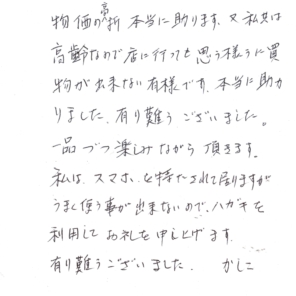 物価の高い折 本当に助ります。又私共は
高齢なので店に行っても思う様うに買
物が出来ない有様です。本当に助か
りました。有り難うございました。
一品づつ楽しみながら頂きます。
私は、スマホを持たされて居りますが
うまく使う事が出来ないので、ハガキを
利用してお礼を申し上げます。
有り難うございました。 かしこ